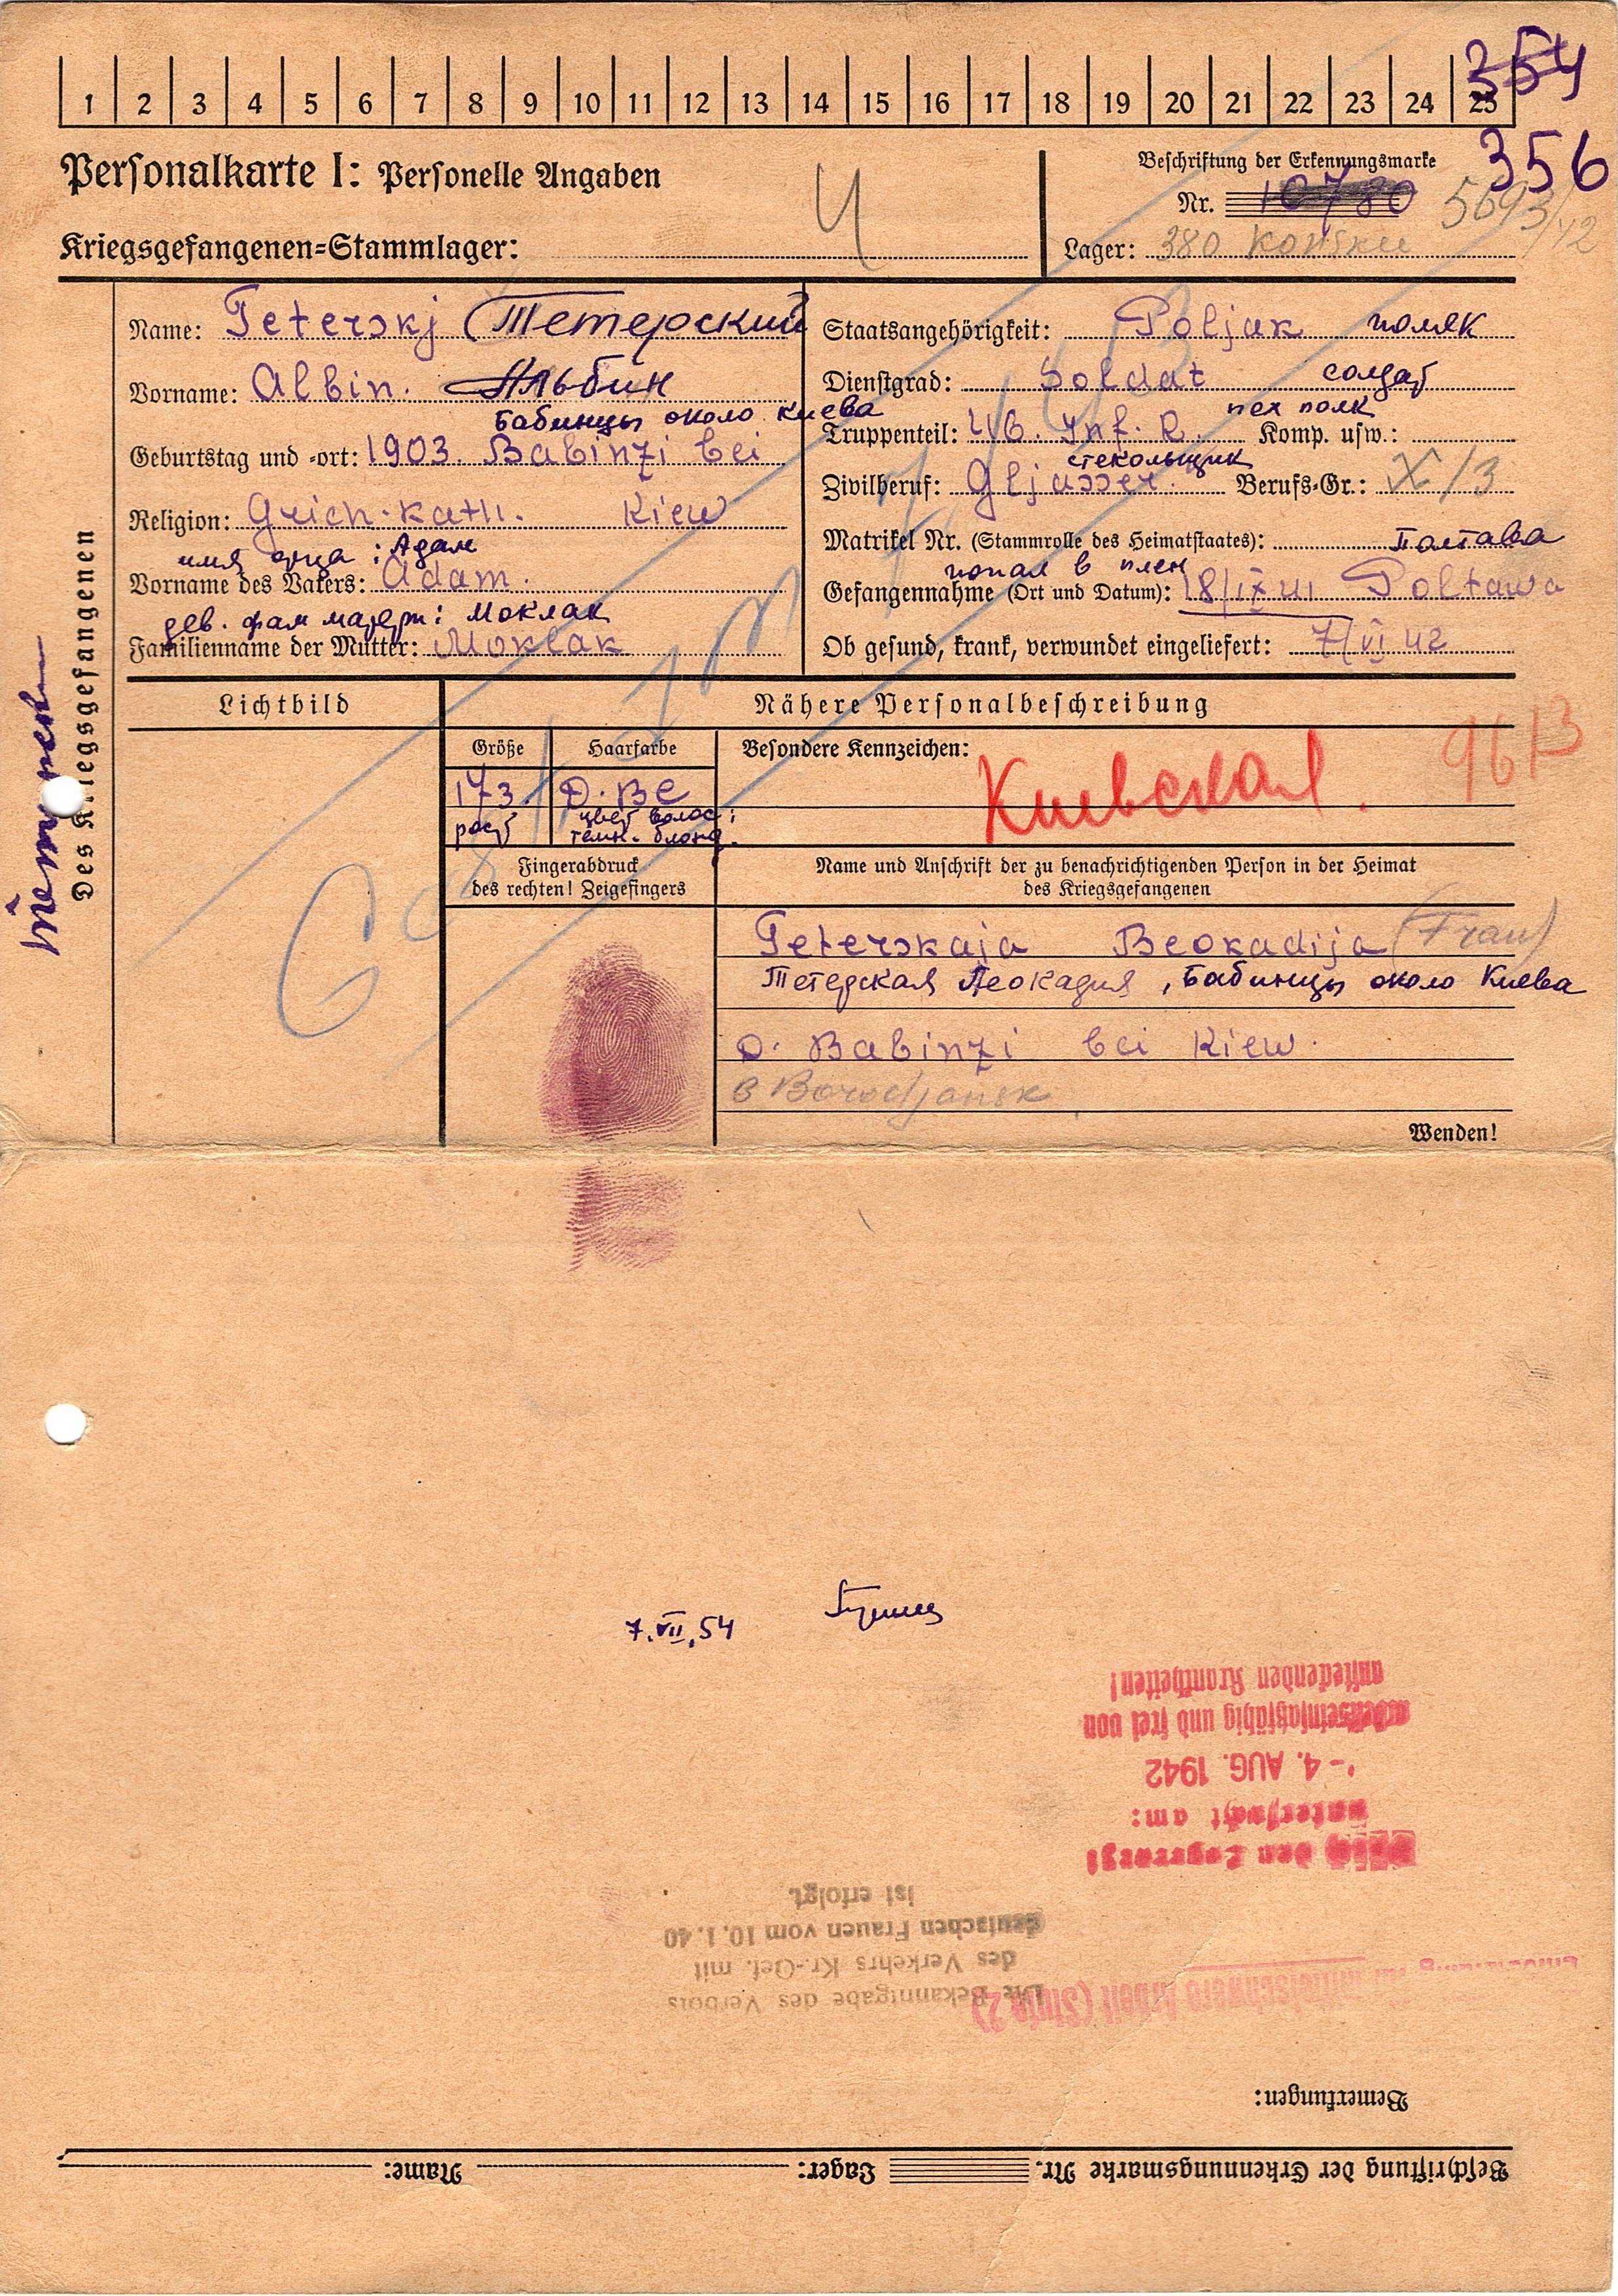 1 2 3 4 5 6 7 8 9 10 11 12 13 14 15 16 17 18 19 20 21 22 23 24 25
354
356
Personalkarte I: Personelle Angaben
Beschriftung der Erkennungsmarke
Nr. 10780
5693/42
Kriegsgefangenen=Stammlager:
Lager: 380
Des Kriegsgefangenen
Name: Teterskj (Тетерский
Vorname: Albin. Альбин
Бабинцы около Киева
Geburtstag und -ort: 1903. Babinzi bei
Religion: Grich-kath. Kiew
имя отца: Адам
Vorname des Vaters: Adam.
дев. фам матери: Моклак
Familienname der Mutter: Moklak
Staatsangehörigkeit: Poljak поляк
Dienstgrad: Soldat солдат
пех полк
Truppenteil: 46. Inf. R. Komp. usw.:
стекольщик
Zivilberuf: Gljasser Berufs=Gr.: X/3
Matrikel Nr. (Stammrolle des Heimatstaates): Полтава
попал в плен
Gefangennahme (Ort und Datum): 18/IX 41 Poltawa
Ob gesund, krank, verwundet eingeliefert: 7/VI 42
Lichtbild
Nähere Personalbeschreibung
Größe
Haarfarbe
Besondere Kennzeichen:
173. D. Be
рост
цвет волос:
темн. блонд.
Киевская.
9613
Fingerabdruck
des rechten! Zeigefingers
Name und Anschrift der zu benachrichtigenden Person in der Heimat
des Kriegsgefangenen
Teterskaja Beokadija (Frau)
Тетерская Леокадия, Бабинцы около Киева
D. Babinzi bei Kiew.
B Borodjansk
Wenden!
7.VII.54
Beschriftung der Erkennungsmarke Nr. Lager: Name:
Bemerkungen:
mittelschwere Arbeit (Stufe 2)
Die Bekanntgabe des Verbots
des Verkehrs Kr.-Gef. mit
deutschen Frauen vom 10.1.40
ist erfolgt.
den Lagerarzt
untersucht am:
- 4. AUG. 1942
arbeitseinsatzfähig und frei von
ansteckenden Krankheiten!